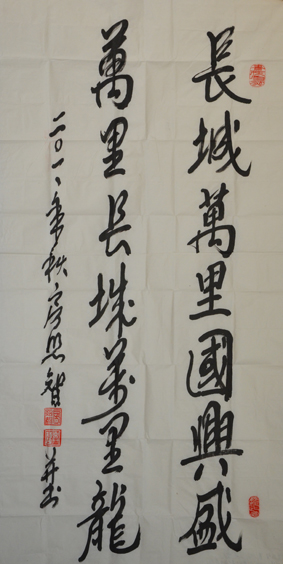 長城萬里國興盛
萬里長城萬里龍
二〇一一年秋房照智并書